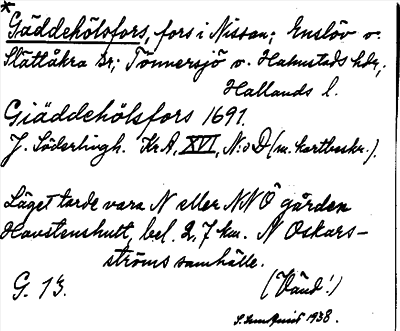 *Gäddehölsfors, fors i Nissan; Enslöv o.
Slättåkra snr; Tönnersjö o. Halmstads hdr,
Hallands l.
Giäddehölsfors 1691.
J. Söderlingh. Kr A, XVI, N:o D (m. kartbeskr.).
Läget torde vara N eller NNÖ gården
Havstenshult, bel. 2,7 km. N Oskars-
ströms samhälle.
G. 13. (Vänd!)
1938.